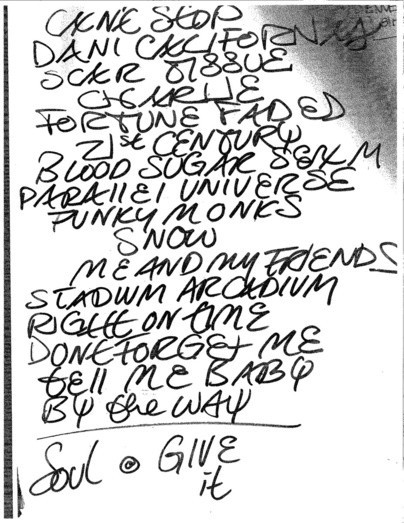 CAN'T STOP
DANI CALIFORNIA
SCAR TISSUE
CHARLIE
FORTUNE FADED
21st CENTURY
BLOOD SUGAR SEX M
PARAllEl UNIVERSE
FUNKY MONKS
SNOW
ME AND MY FRIENDS
STADIUM ARCADIUM
RIGHT ON TIME
DON'T FORGET ME
tell ME BABY
BY the WAY
Soul GIVE
it